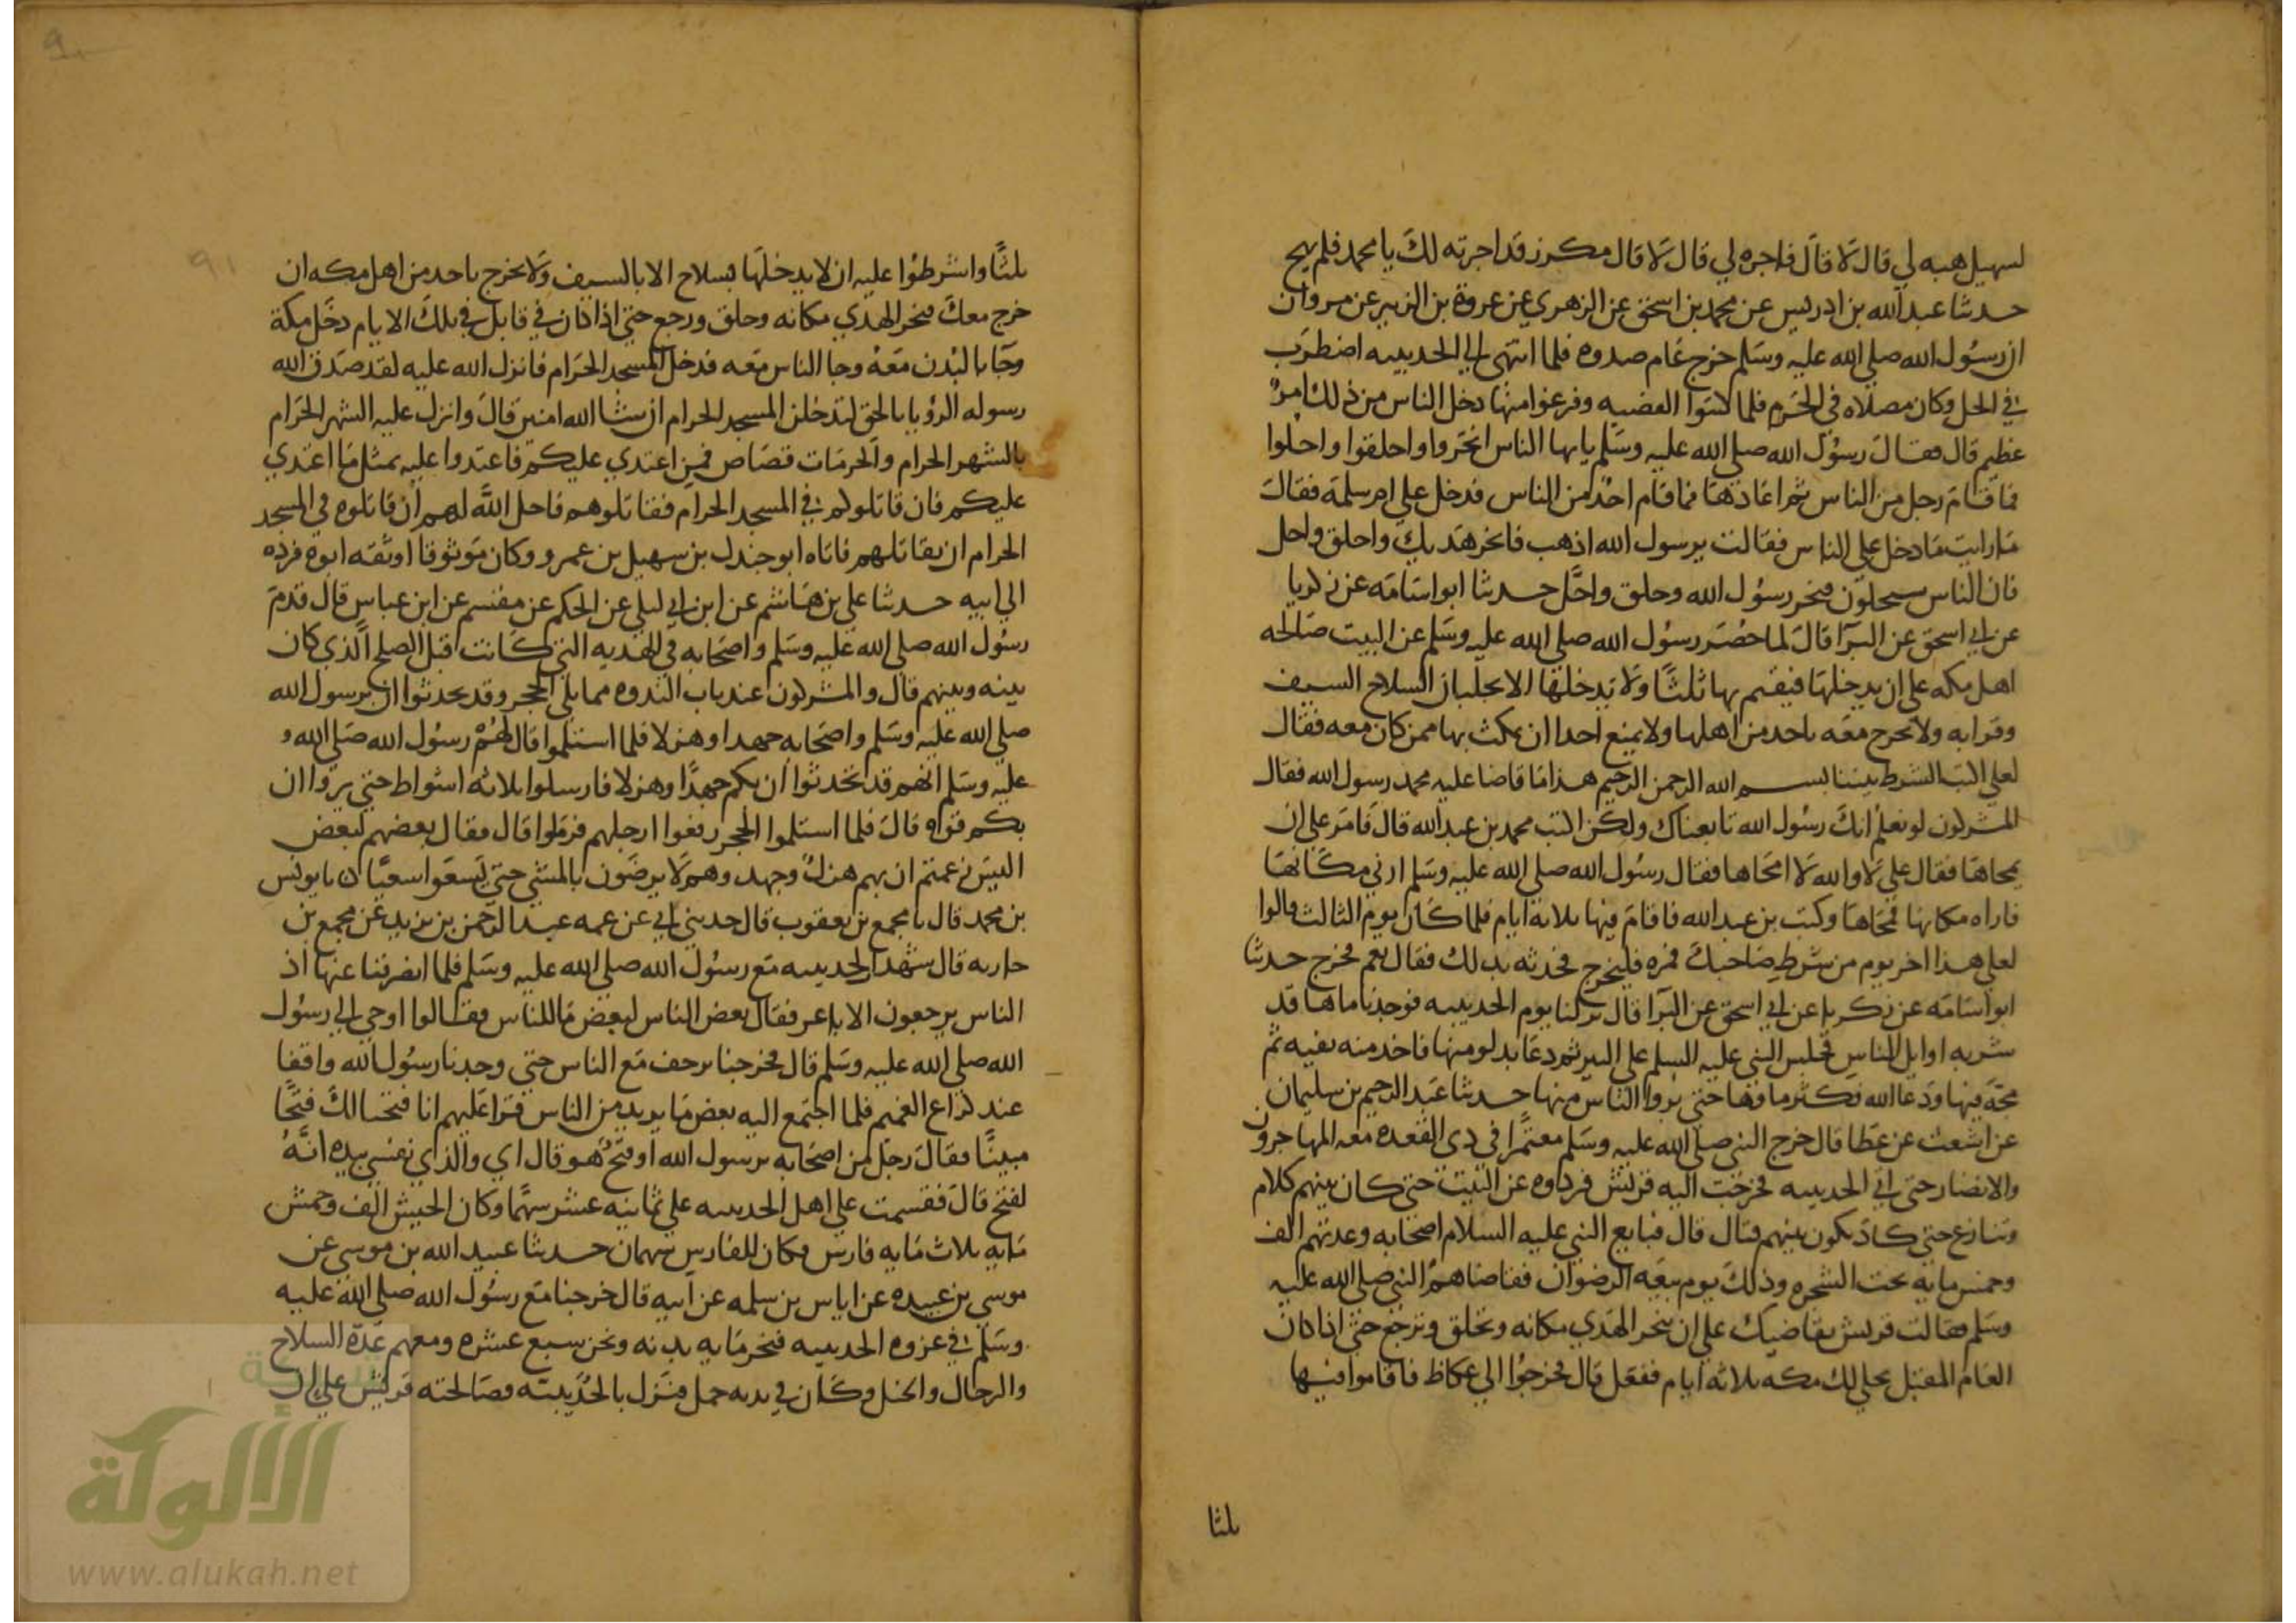 لسهيل هبه لي قال لا قال فاجره لي قال لا قال مكرز قد اجرته لك يا محمد فلم يهج
حدثنا عبد الله بن ادريس عن محمد بن اسحق عن الزهري عن عروة بن الزبير عن مروان
ان رسول الله صلى الله عليه وسلم خرج عام صدوه فلما انتهى الى الحديبيه اضطرب
في الحل وكان مصلاه في الحرم فلما كتبوا القضيه وفرغوا منها دخل الناس من ذلك امر
عظيم قال فقال رسول الله صلى الله عليه وسلم يايها الناس انحروا واحلقوا واحلوا
فما قام رجل من الناس ثم اعادها فما قام احد من الناس فدخل على ام سلمة فقال
ما رايت ما دخل على الناس فقالت يرسول الله اذهب فانحر هديك واحلق واحل
فان الناس سيحلون فنحر رسول الله وحلق واحل حدثنا ابو اسامه عن زكريا
عن ابي اسحق عن البرا قال لما حصر رسول الله صلى الله عليه وسلم عن البيت صالحه
اهل مكه على ان يدخلها فيقيم بها ثلثا ولا يدخلها الا بجلبان السلاح السيف
وقرابه ولا يخرج معه باحد من اهلها ولا يمنع احدا ان يمكث بها ممن كان معه فقال
لعلي اكتب الشرط بيننا بسم الله الرحمن الرحيم هذا ما قاضا عليه محمد رسول الله فقال
المشركون لو نعلم انك رسول الله تابعناك ولكن اكتب محمد بن عبد الله قال فامر علي ان
يمحاها فقال علي لا والله لا امحاها فقال رسول الله صلى الله عليه وسلم ارني مكانها
فاراه مكانها فمحاها وكتب بن عبد الله فاقام فيها ثلاثة ايام فلما كان يوم الثالث قالوا
لعلي هذا اخر يوم من شرط صاحبك فمره فليخرج فحدثه بذلك فقال نعم فخرج حدثنا
ابو اسامه عن زكريا عن ابي اسحق عن البرا قال نزلنا يوم الحديبيه فوجدنا ماها قد
شربه اوايل الناس فجلس النبي عليه السلم على البير ثم دعا بدلو منها فاخذ منه بفيه ثم
مجه فيها ودعا الله فكثر ماوها حتى تروا الناس منها حدثنا عبد الرحيم بن سليمان
عن اشعث عن عطا قال خرج النبي صلى الله عليه وسلم معتمرا في ذي القعده معه المهاجرون
والانصار حتى اتي الحديبيه فخرجت اليه قريش فردوه عن البيت حتى كان بينهم كلام
وتنازع حتى كاد يكون بينهم قتال قال فبايع النبي عليه السلام اصحابه وعدتهم الف
وخمس مايه تحت الشجره وذلك يوم بيعه الرضوان فقاضاهم النبي صلى الله عليه
وسلم فقالت قريش نقاضيك على ان تنحر الهدي مكانه وتحلق وترجع حتى اذا كان
العام المقبل نخلي لك مكه ثلاثه ايام ففعل قال فخرجوا الى عكاظ فاقاموا فيها
ثلثا
ثلثا واشرطوا عليه ان لا يدخلها بسلاح الا بالسيف ولا تخرج باحد من اهل مكه ان
خرج معك فنحر الهدي مكانه وحلق ورجع حتى اذا كان في قابل في تلك الايام دخل مكة
وجا بالبدن معه وجا الناس معه فدخل المسجد الحرام فانزل الله عليه لقد صدق الله
رسوله الرؤيا بالحق لتدخلن المسجد الحرام ان شا الله امنين قال وانزل عليه الشهر الحرام
بالشهر الحرام والحرمات قصاص فمن اعتدي عليكم فاعتدوا عليه بمثل ما اعتدي
عليكم فان قاتلوكم في المسجد الحرام فقاتلوهم فاحل الله لهم ان قاتلوه في المسجد
الحرام ان يقاتلهم فاتاه ابو جندل بن سهيل بن عمرو وكان موثوقا اوثقه ابوه فرده
الي ابيه حدثنا علي بن هاشم عن ابن ابي ليلي عن الحكم عن مقسم عن ابن عباس قال قدم
رسول الله صلى الله عليه وسلم واصحابه في الهديه التي كانت قبل الصلح الذي كان
بينه وبينهم قال والمشركون عند باب الندوه مما يلي الحجر وقد تحدثوا ان برسول الله
صلى الله عليه وسلم واصحابه جهدا وهزلا فلما استلموا قال لهم رسول الله صلى الله
عليه وسلم انهم قد تحدثوا ان بكم جهدا وهزلا فارملوا ثلاثه اشواط حتى يروا ان
بكم قوه قال فلما استلموا الحجر رفعوا ارجلهم فرملوا قال فقال بعضهم لبعض
اليس زعمتم ان بهم هزلا وجهد وهم لا يرضون بالمشي حتى يسعوا سعيا نا يونس
بن محمد قال نا مجمع بن يعقوب قال حدثني ابي عن عمه عبد الرحمن بن يزيد عن مجمع بن
جاريه قال شهدت الحديبيه مع رسول الله صلى الله عليه وسلم فلما انصرفنا عنها اذ
الناس يوجفون الاباعر فقال بعض الناس لبعض ما للناس فقالوا اوحي الى رسول
الله صلى الله عليه وسلم قال فخرجنا نرجف مع الناس حتى وجدنا رسول الله واقفا
عند كراع الغميم فلما اجتمع اليه بعض ما يريد من الناس قرا عليهم انا فتحنا لك فتحا
مبينا فقال رجل من اصحابه يرسول الله او فتح هو قال اي والذي نفسي بيده انه
لفتح قال فقسمت على اهل الحديبيه على ثمانيه عشر سهما وكان الجيش الف وخمس
مايه ثلاث مايه فارس فكان للفارس سهمان حدثنا عبيد الله بن موسى عن
موسى بن عبيده عن اياس بن سلمه عن ابيه قال خرجنا مع رسول الله صلى الله عليه
وسلم في غزوه الحديبيه فنحر مايه بدنه ونحن سبع عشره ومعهم عدة السلاح
والرجال والخيل وكان في بدنه جمل فنزل بالحديبيه فصالحته قريش على ان
٩١
الألوكة
www.alukah.net